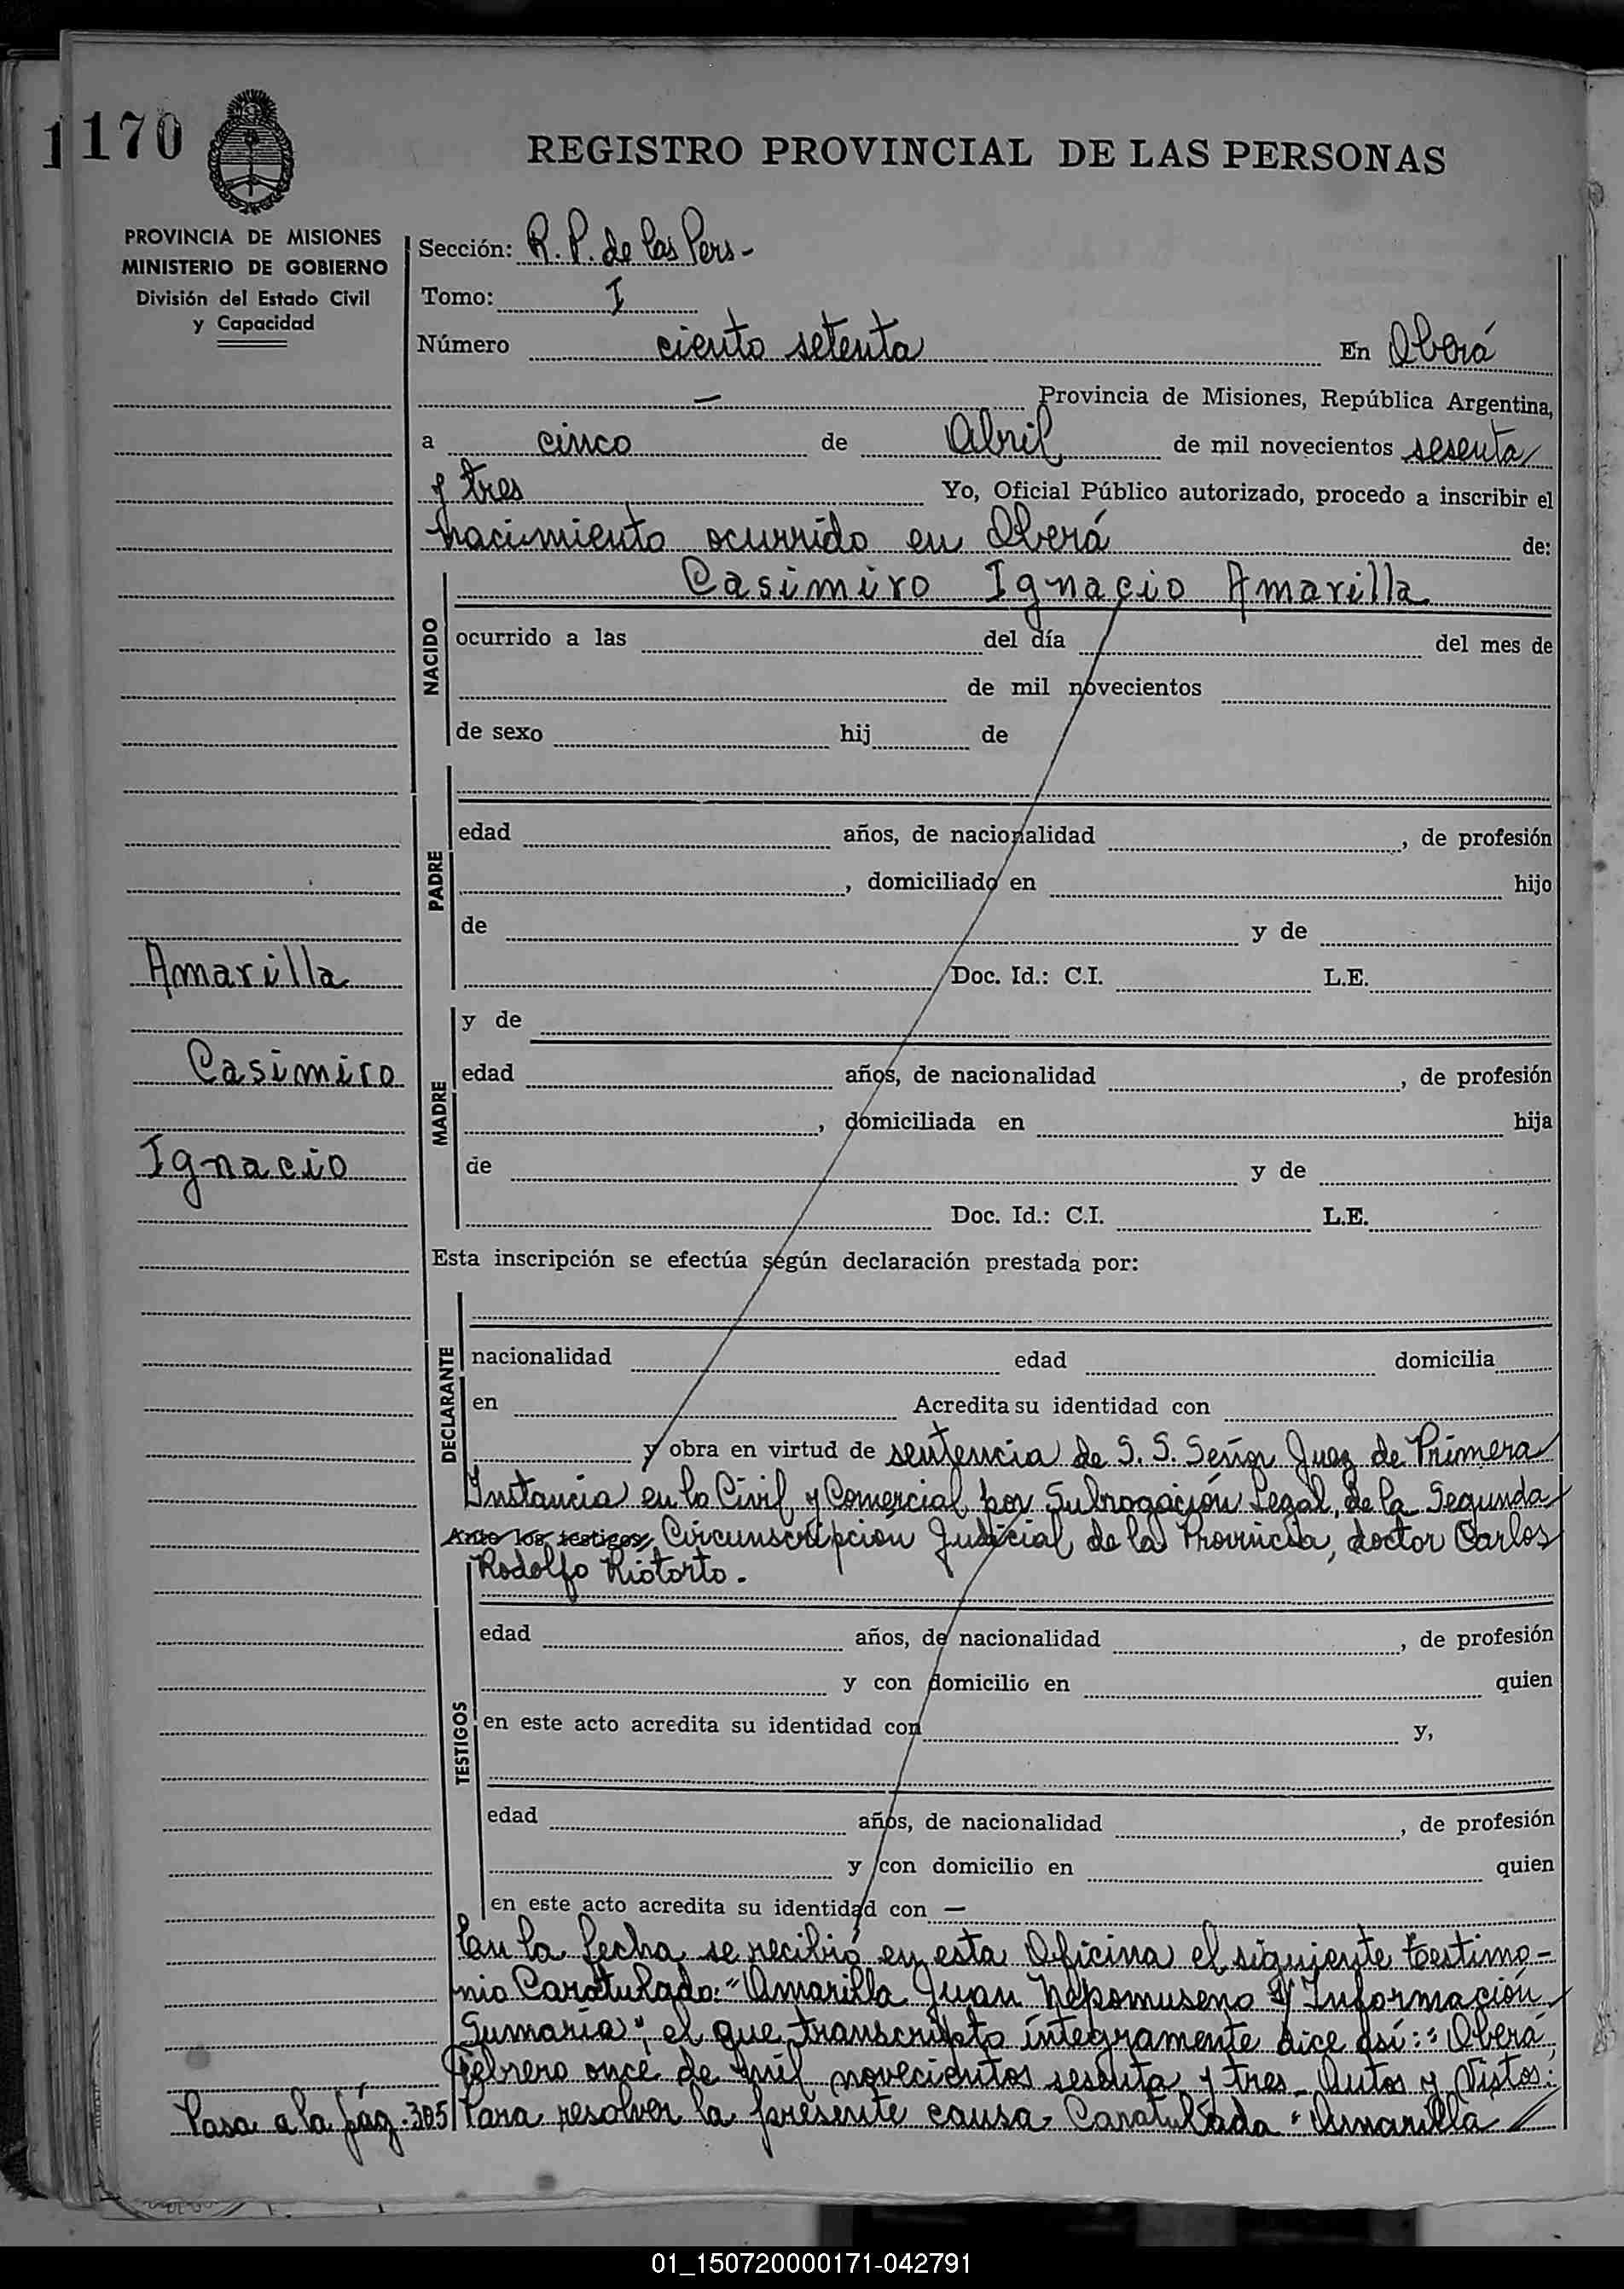 1170
REGISTRO PROVINCIAL DE LAS PERSONAS
PROVINCIA DE MISIONES
MINISTERIO DE GOBIERNO
División del Estado Civil
y Capacidad
Sección: R. P. de las Pers-
Tomo: I
Número ciento setenta En Oberá
— Provincia de Misiones, República Argentina,
a cinco de Abril de mil novecientos sesenta
y tres Yo, Oficial Público autorizado, procedo a inscribir el
nacimiento ocurrido en Oberá de:
Casimiro Ignacio Amarilla
NACIDO
ocurrido a las del día del mes de
de mil novecientos
de sexo hij de
PADRE
edad años, de nacionalidad , de profesión
, domiciliado en hijo
de y de
Doc. Id.: C.I. L.E.
Amarilla
Casimiro
Ignacio
MADRE
y de
edad años, de nacionalidad , de profesión
, domiciliada en hija
de y de
Doc. Id.: C.I. L.E.
Esta inscripción se efectúa según declaración prestada por:
DECLARANTE
nacionalidad edad domicilia
en Acredita su identidad con
y obra en virtud de sentencia de S. S. Señor Juez de Primera
Instancia en lo Civil y Comercial por Subrogación Legal, de la Segunda
Ante los testigos, Circunscripción Judicial de la Provincia, doctor Carlos
Rodolfo Riotorto.-
TESTIGOS
edad años, de nacionalidad , de profesión
y con domicilio en quien
en este acto acredita su identidad con y,
edad años, de nacionalidad , de profesión
y con domicilio en quien
en este acto acredita su identidad con —
En la fecha se recibió en esta Oficina el siguiente testimo-
nio Caratulado: "Amarilla Juan Nepomuseno S/ Información
Sumaria", el que transcripto íntegramente dice así: "Oberá,
Febrero once de mil novecientos sesenta y tres- Autos y Vistos:
Pasa a la pág. 305 Para resolver la presente causa Caratulada "Amarilla
01_150720000171-042791